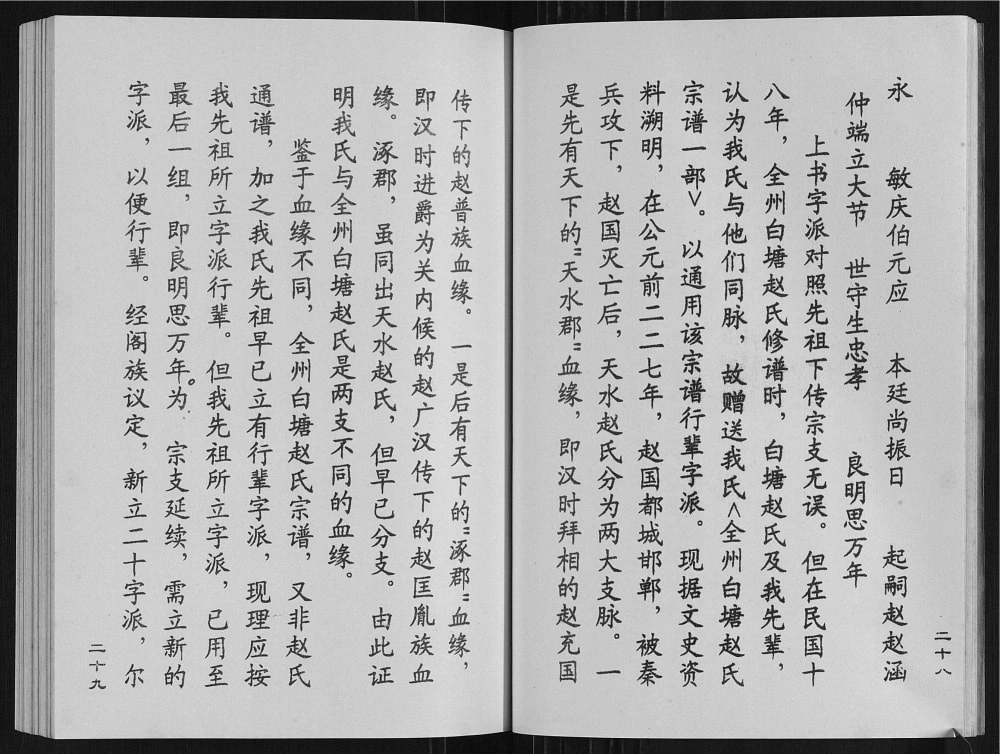 永　敏庆伯元应　本廷尚振日　起嗣赵赵涵
仲端立大节　世守生忠孝　良明思万年
上书字派对照先祖下传宗支无误。但在民国十
八年，全州白塘赵氏修谱时，白塘赵氏及我先辈，
认为我氏与他们同脉，故赠送我氏<全州白塘赵氏
宗谱一部>。以通用该宗谱行辈字派。现据文史资
料溯明，在公元前二二七年，赵国都城邯郸，被秦
兵攻下，赵国灭亡后，天水赵氏分为两大支脉。一
是先有天下的"天水郡"血缘，即汉时拜相的赵充国
二十八
传下的赵普族血缘。一是后有天下的"涿郡"血缘，
即汉时进爵为关内候的赵广汉传下的赵匡胤族血
缘。涿郡，虽同出天水赵氏，但早已分支。由此证
明我氏与全州白塘赵氏是两支不同的血缘。
鉴于血缘不同，全州白塘赵氏宗谱，又非赵氏
通谱，加之我氏先祖早已立有行辈字派，现理应按
我先祖所立字派行辈。但我先祖所立字派，已用至
最后一组，即良明思万年。为宗支延续，需立新的
字派，以便行辈。经阁族议定，新立二十字派，尔
二十九